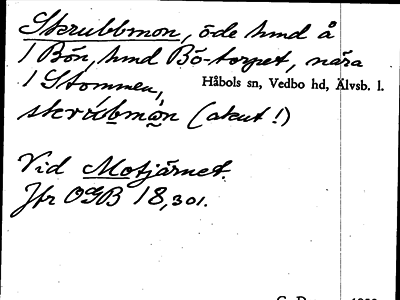 Skrubbmon, öde hmd å
1 Bön, hmd Bö-torpet, nära
1 Stommen,
Håbols sn, Vedbo hd, Älvsb. l.
(akut!)
Vid Motjärnet.
Jfr OGB 18,301.